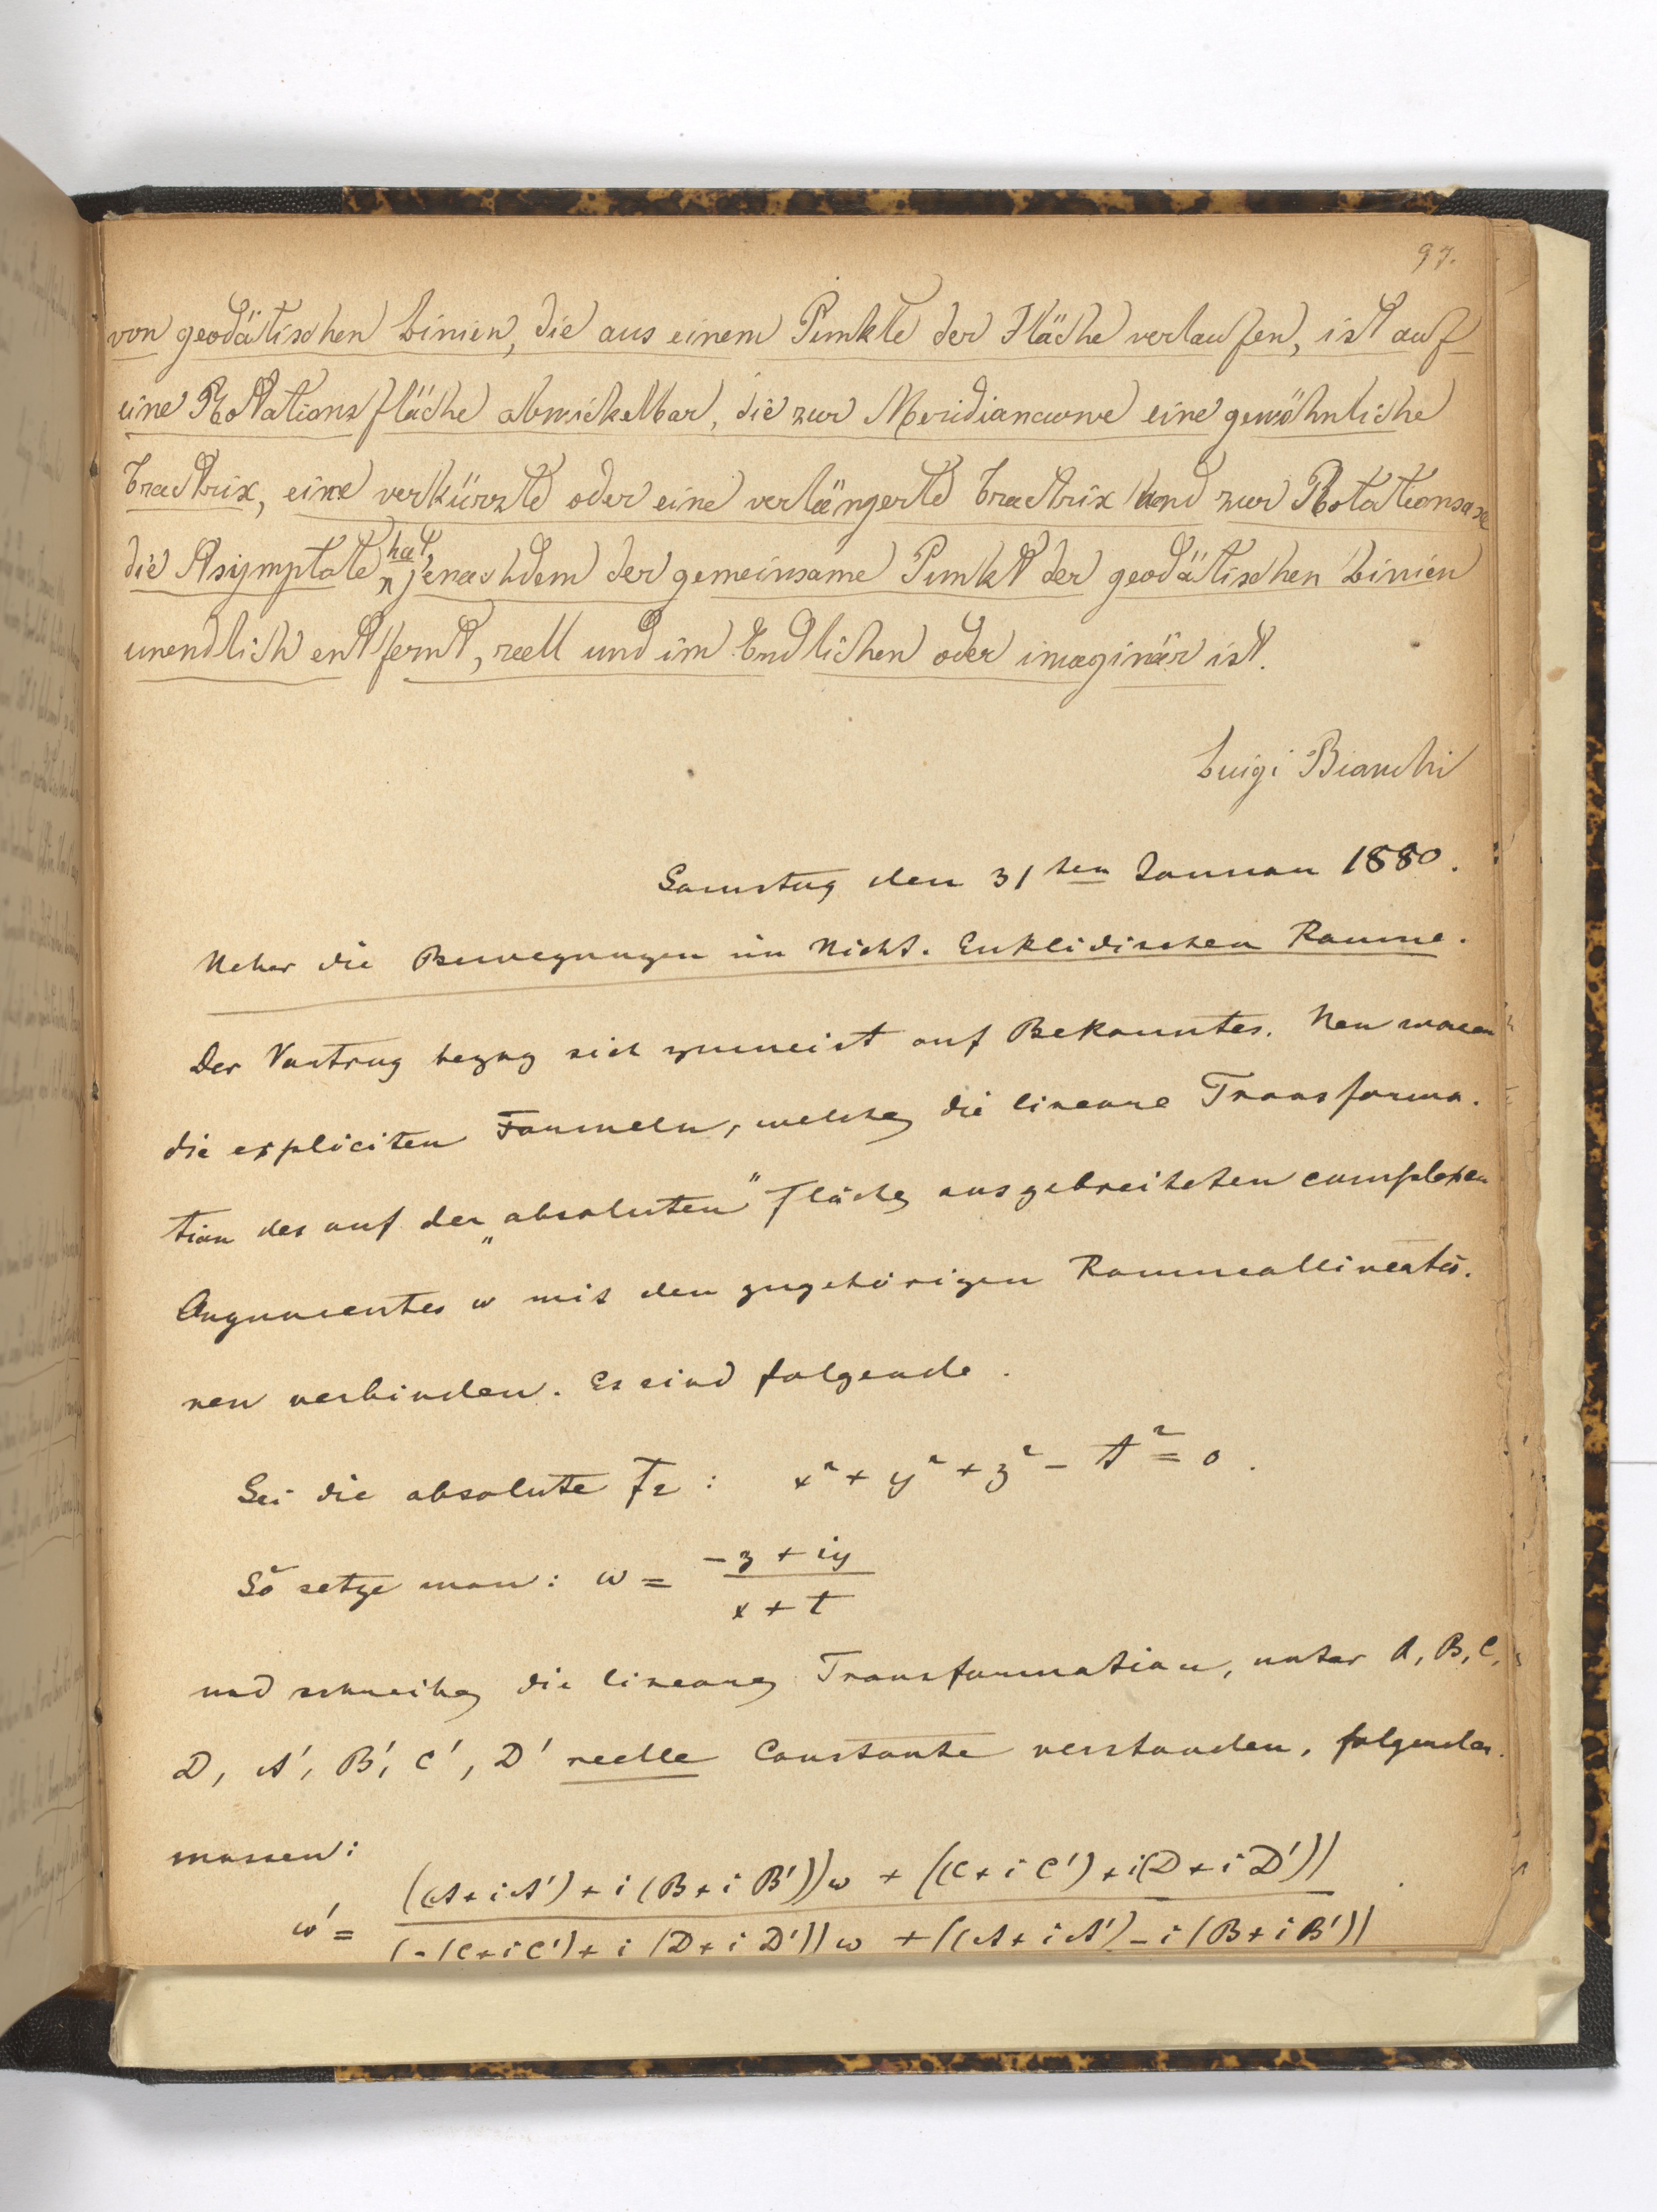 97.
von geodätischen Linien, die aus einem Punkte der Fläche verlaufen, ist auf
eine Rotationsfläche abwickelbar, die zur Meridiancurve eine gewöhnliche
Tractrix, eine verkürzte oder eine verlängerte Tractrix und zur Rotationsaxe
die Asymptote hat, jenachdem der gemeinsame Punkt der geodätischen Linien
unendlich entfernt, reell und im Endlichen oder imaginär ist.
Luigi Bianchi
Samstag den 31ten Januar 1880.
Ueber die Bewegungen im Nicht-Euklidischen Raume.
Der Vortrag bezog sich zumeist auf Bekanntes. Neu waren
die expliciten Formeln, welche die lineare Transforma-
tion des auf der „absoluten" Fläche ausgebreiteten complexen
Argumentes w mit den zugehörigen Raumcollineatio-
nen verbinden. Es sind folgende.
Sei die absolute F2: x² + y² + z² - t² = 0.
So setze man: w = (-z + iy)/(x + t)
und schreibe die lineare Transformation, unter A, B, C,
D, A', B', C', D' reelle Constante verstanden, folgender-
massen:
w' = (((A + iA') + i(B + iB'))w + ((C + iC') + i(D + iD')))/((-(C + iC') + i(D + iD'))w + ((A + iA') - i(B + iB')))